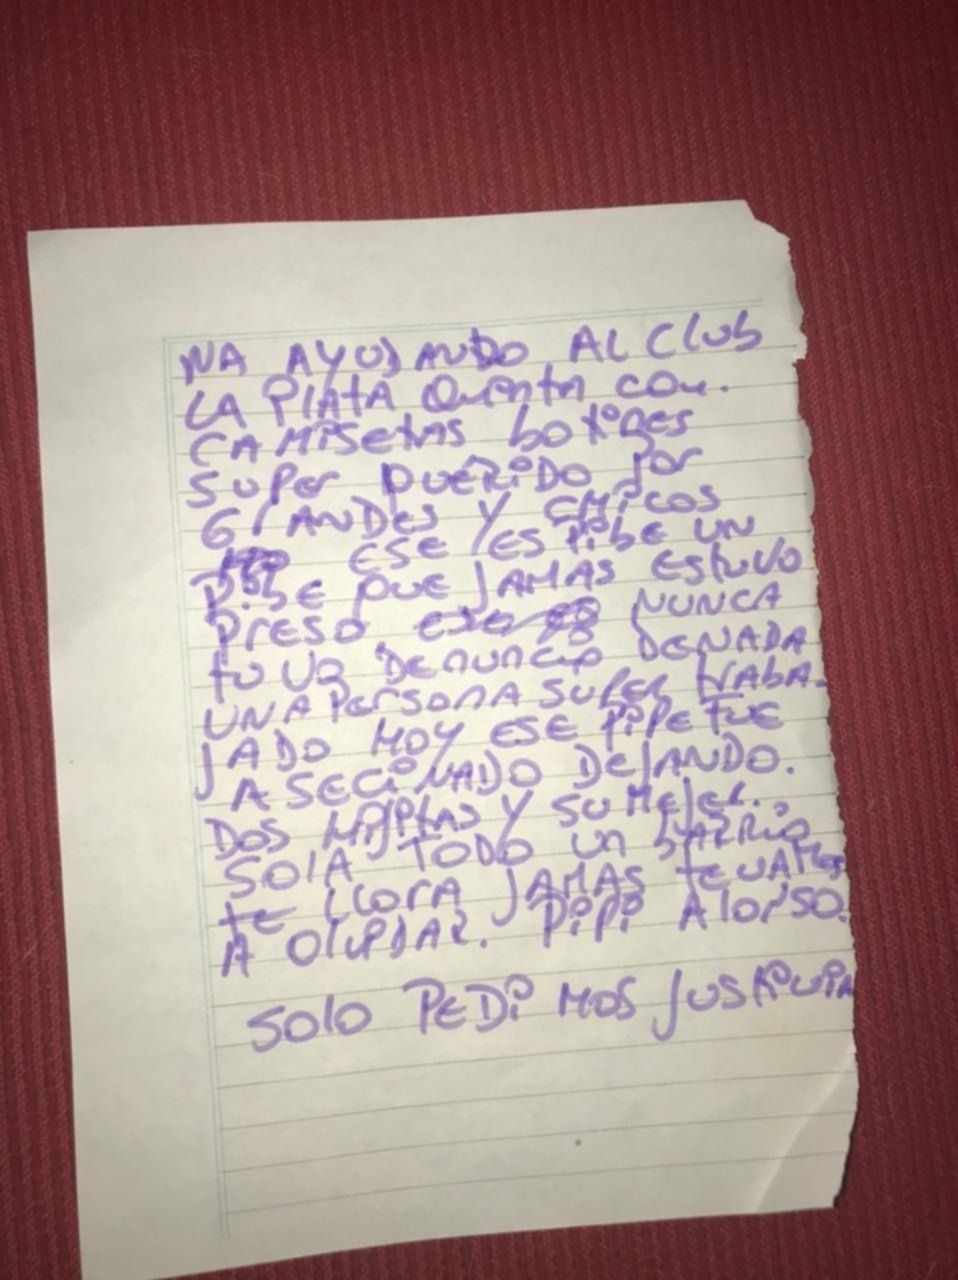 NA AYUDANDO AL Club
LA PlAtA Quenta con.
CAMisetas botines
super QUERIDO por
GrANDES Y CHicos
ESE Yes Pibe UN
Pibe QUE JAMAS EStUVO
Preso NUNCA
tuvo Denuncia DENADA
UNA Persona SUPER traba-
JADO HOY ESE PIPE FUE
ASECINADO DEJANDO.
DOS Hijitas Y SU Mejer.
SOlA TODO un BARRio
te llora JAMAS te VAMos
A OlviDAr. Pipi Alonso.
SOlO PEDiMOS Justicia